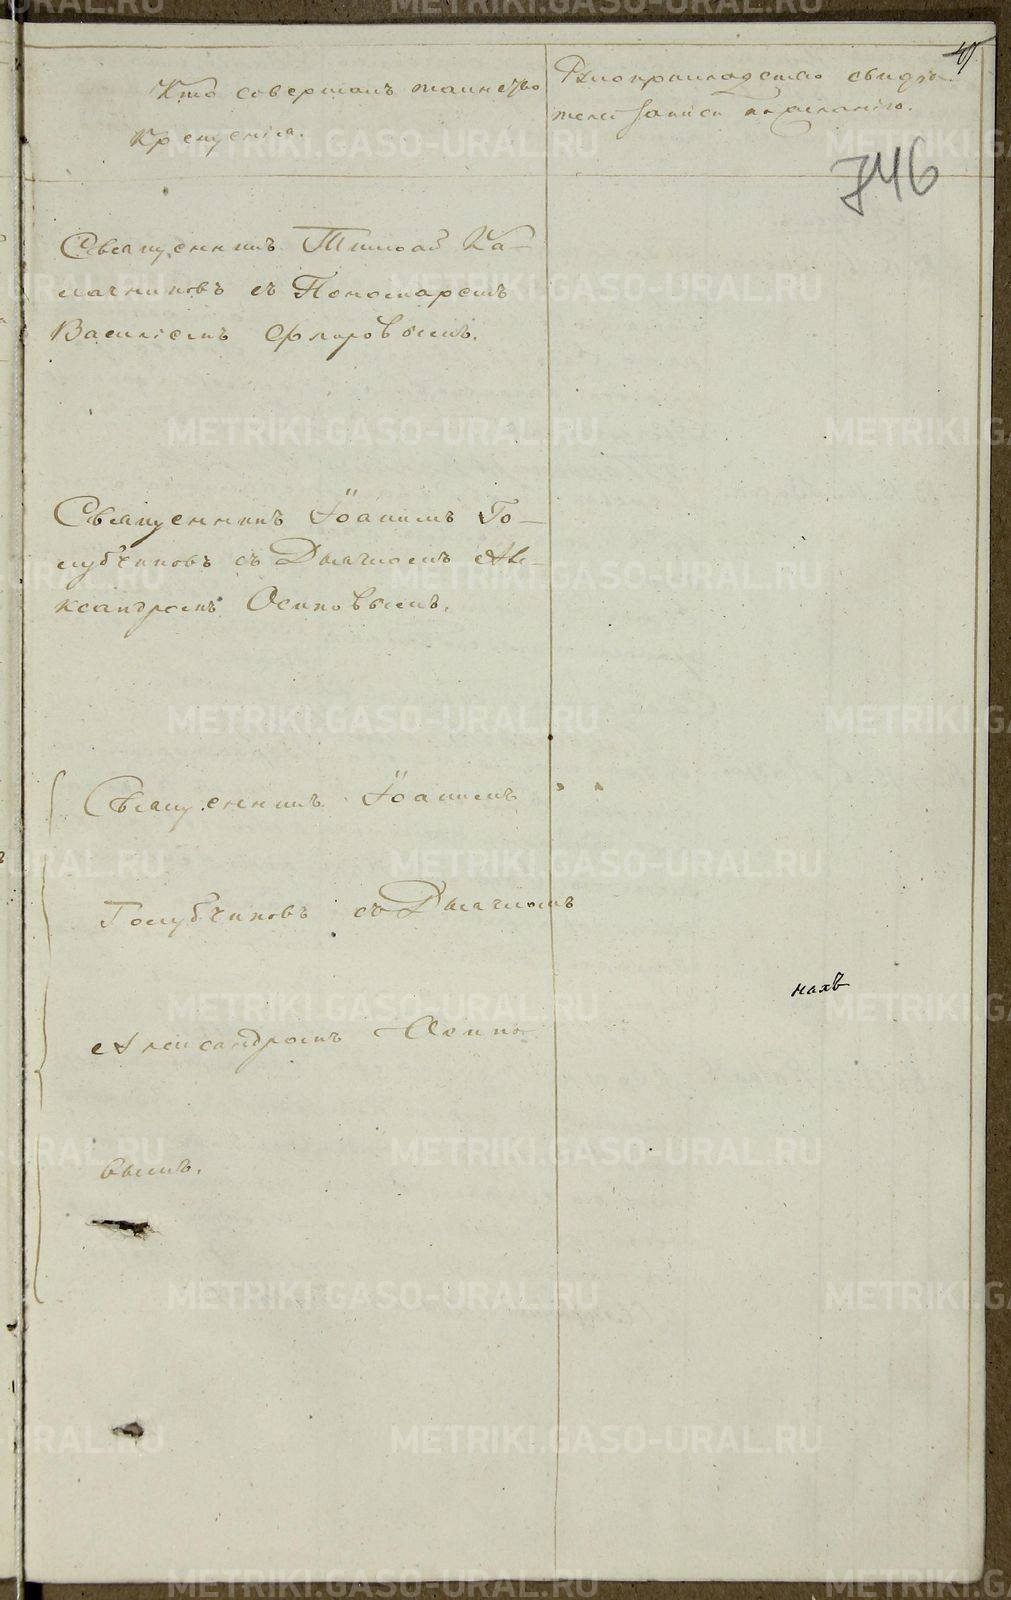 Кто совершалъ таинство
Крещенія.
Рукоприкладство свидѣ-
телей записи по желанію.
47
746
Священникъ Тимофей Ка-
лачниковъ съ Пономаремъ
Василіемъ Флоровымъ.
Священникъ Іоаннъ Го-
лубчиковъ съ Дьячкомъ Але-
ксандромъ Осиповымъ.
Священникъ Іоаннъ
Голубчиковъ съ Дьячкомъ
Александромъ Осипо-
вымъ.
нахъ
METRIKI.GASO-URAL.RU